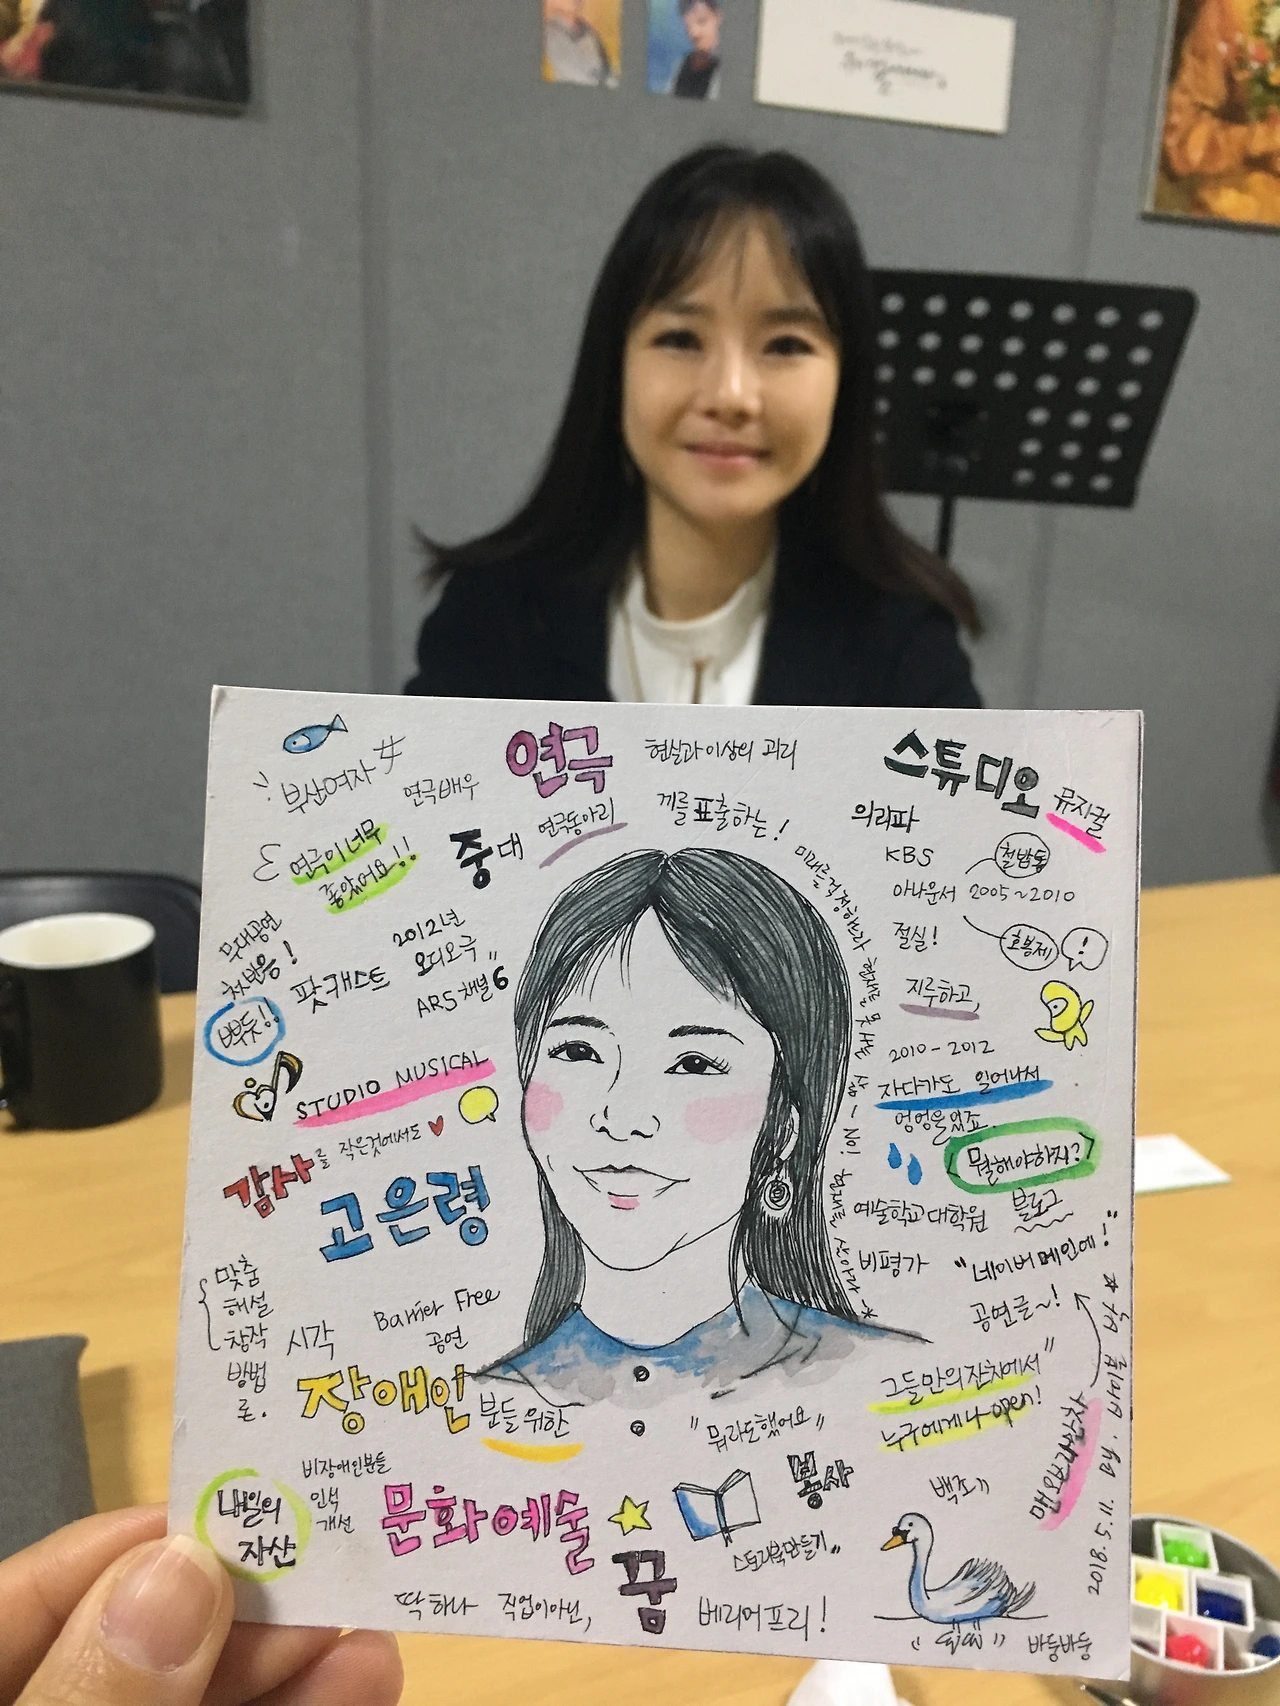 부산여자
연극배우
연극
현실과 이상의 괴리
스튜디오
뮤지컬
연극이 너무
좋았어요!!
중대
연극동아리
끼를 표출하는!
의리파
KBS
철밥통
아나운서 2005~2010
호봉제
!
절실!
지루하고,
2010-2012
자다가도 일어나서
엉엉울었죠.
뭘해야하지?
예술학교 대학원
블로그
비평가
"네이버 메인에"
공연글~!
무대공연
첫반응!
뿌듯!!
팟캐스트
2012년
오디오극
ARS 채널 6
STUDIO MUSICAL
감사를 작은것에서도
고은령
맞춤
해설
창작
방법
론.
시각
Barrier Free
공연
장애인
분들 위한
비장애인분들
인식
개선
내일의
자산
문화예술
꿈
딱 하나 직업이 아닌,
베리어프리!
"뭐라도했어요"
봉사
스토리북만들기"
그들만의 잔치에서"
누구에게나 open!
백조"
바둥바둥
2018.5.11